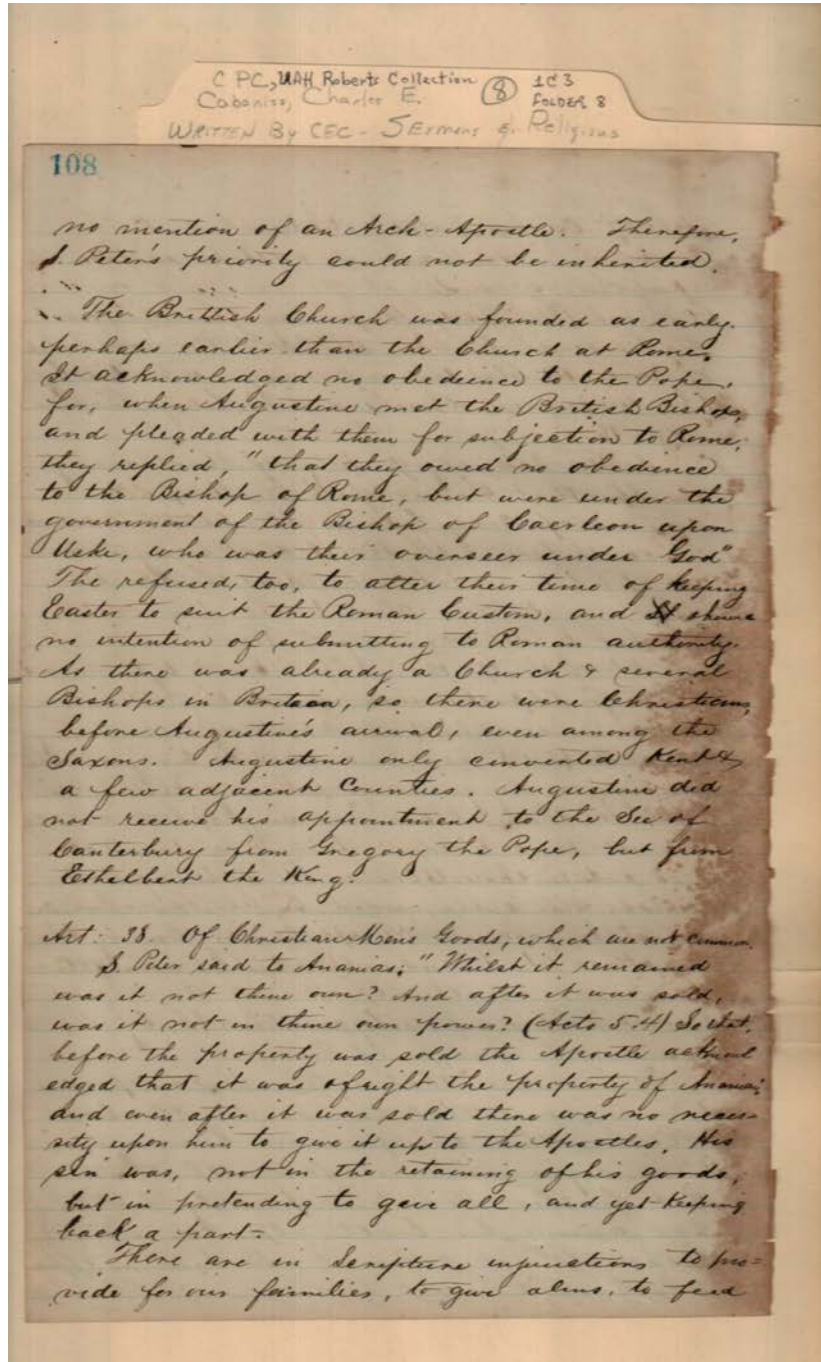 C PC, UAH Roberts Collection 8 1C3
Cabaniss, Charles E. FOLDER 8
WRITTEN BY CEC - SERMONS & Religious
108
no mention of an Arch-Apostle. Therefore,
S. Peter's priority could not be inherited.
The Brittish Church was founded as early.
perhaps earlier than the Church at Rome.
It acknowledged no obedience to the Pope,
for, when Augustine met the British Bishops,
and pleaded with them for subjection to Rome,
they replied, "that they owed no obedience
to the Bishop of Rome, but were under the
government of the Bishop of Caerleon upon
Uske, who was their overseer under God"
The refused, too, to alter their time of keeping
Easter to suit the Roman Custom, and
no intention of submitting to Roman authority.
As there was already a Church & several
Bishops in Britain, so there were Christians,
before Augustine's arrival, even among the
Saxons. Augustine only converted Kent &
a few adjacent Counties. Augustine did
not receive his appointment to the See of
Canterbury from Gregory the Pope, but from
Ethelbert the King.
Art: 38. Of Christian Men's Goods, which are not common.
S. Peter said to Ananias; "Whilst it remained
was it not thine own? And after it was sold,
was it not in thine own power? (Acts 5.4) So that,
before the property was sold the Apostle acknowl
edged that it was of right the property of Ananias;
and even after it was sold there was no neces-
sity upon him to give it up to the Apostles. His
sin was, not in the retaining of his goods,
but in pretending to give all, and yet keeping
back a part.
There are in Scripture injunctions to pro-
vide for our families, to give alms, to feed